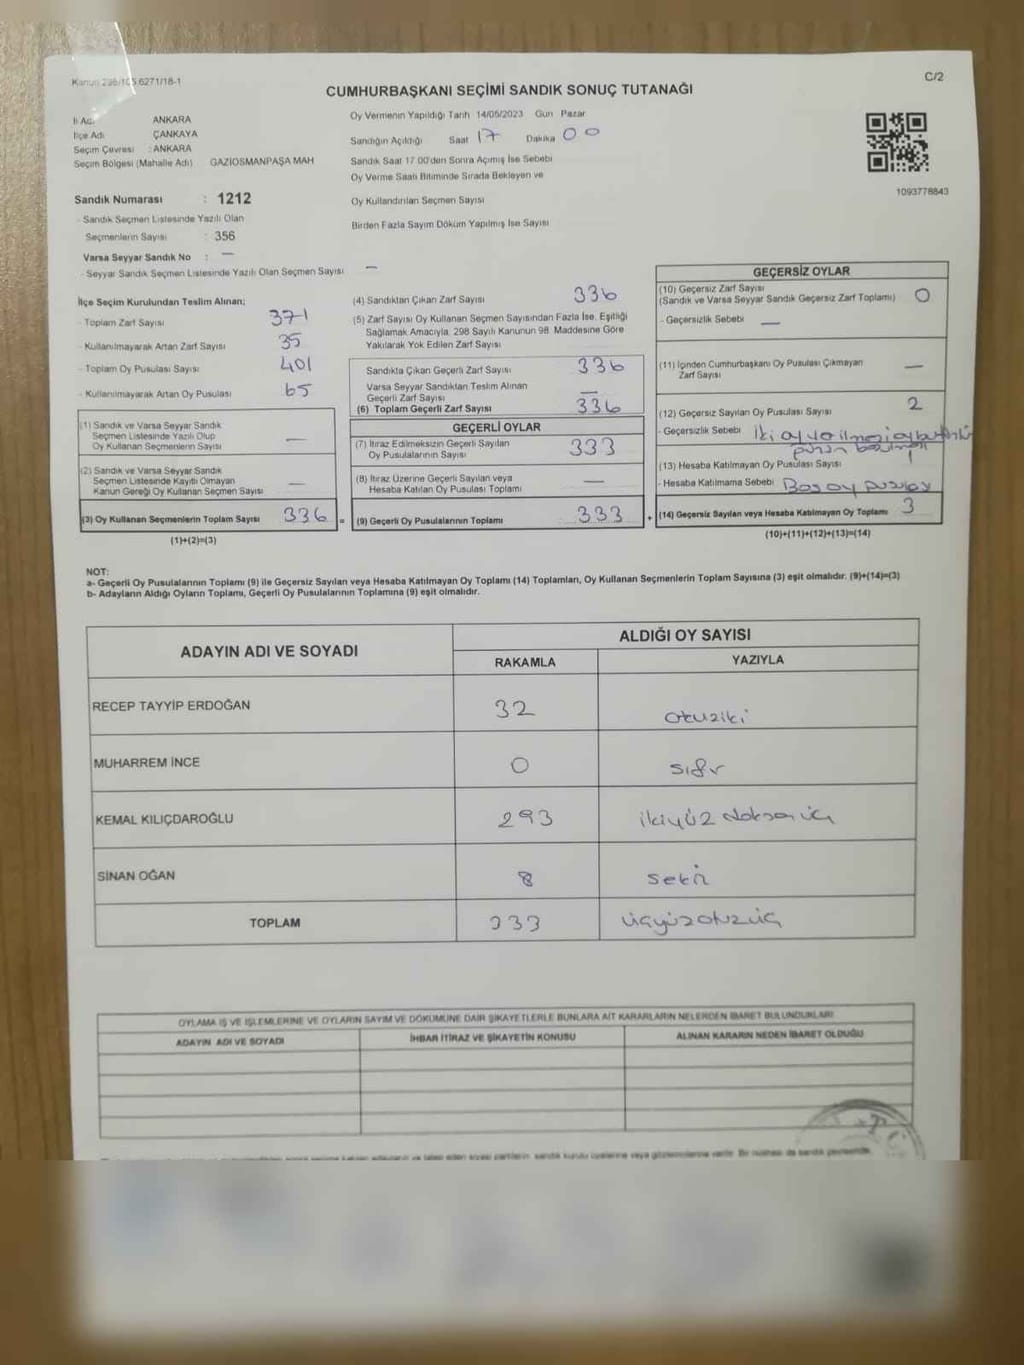 Kanun 298/105 6271/18-1
C/2
CUMHURBAŞKANI SEÇİMİ SANDIK SONUÇ TUTANAĞI
İl Adı ANKARA
İlçe Adı ÇANKAYA
Seçim Çevresi : ANKARA
Seçim Bölgesi (Mahalle Adı) GAZİOSMANPAŞA MAH
Sandık Numarası : 1212
- Sandık Seçmen Listesinde Yazılı Olan
Seçmenlerin Sayısı : 356
Varsa Seyyar Sandık No : —
- Seyyar Sandık Seçmen Listesinde Yazılı Olan Seçmen Sayısı —
Oy Vermenin Yapıldığı Tarih 14/05/2023 Gün Pazar
Sandığın Açıldığı Saat 17 Dakika 00
Sandık Saat 17 00'den Sonra Açımış İse Sebebi
Oy Verme Saati Bitiminde Sırada Bekleyen ve
Oy Kullandırılan Seçmen Sayısı
Birden Fazla Sayım Döküm Yapılmış İse Sayısı
1093778843
İlçe Seçim Kurulundan Teslim Alınan;
- Toplam Zarf Sayısı 371
- Kullanılmayarak Artan Zarf Sayısı 35
- Toplam Oy Pusulası Sayısı 401
- Kullanılmayarak Artan Oy Pusulası 65
(1) Sandık ve Varsa Seyyar Sandık
Seçmen Listesinde Yazılı Olup
Oy Kullanan Seçmenlerin Sayısı —
(2) Sandık ve Varsa Seyyar Sandık
Seçmen Listesinde Kayıtlı Olmayan
Kanun Gereği Oy Kullanan Seçmen Sayısı —
(3) Oy Kullanan Seçmenlerin Toplam Sayısı 336 =
(1)+(2)=(3)
(4) Sandıktan Çıkan Zarf Sayısı 336
(5) Zarf Sayısı Oy Kullanan Seçmen Sayısından Fazla İse, Eşitliği
Sağlamak Amacıyla, 298 Sayılı Kanunun 98. Maddesine Göre
Yakılarak Yok Edilen Zarf Sayısı
Sandıkta Çıkan Geçerli Zarf Sayısı 336
Varsa Seyyar Sandıktan Teslim Alınan
Geçerli Zarf Sayısı —
(6) Toplam Geçerli Zarf Sayısı 336
GEÇERLİ OYLAR
(7) İtiraz Edilmeksizin Geçerli Sayılan
Oy Pusulalarının Sayısı 333
(8) İtiraz Üzerine Geçerli Sayılan veya
Hesaba Katılan Oy Pusulası Toplamı —
(9) Geçerli Oy Pusulalarının Toplamı 333 +
GEÇERSİZ OYLAR
(10) Geçersiz Zarf Sayısı
(Sandık ve Varsa Seyyar Sandık Geçersiz Zarf Toplamı) 0
- Geçersizlik Sebebi —
(11) İçinden Cumhurbaşkanı Oy Pusulası Çıkmayan
Zarf Sayısı —
(12) Geçersiz Sayılan Oy Pusulası Sayısı 2
- Geçersizlik Sebebi İki oy
(13) Hesaba Katılmayan Oy Pusulası Sayısı 1
- Hesaba Katılmama Sebebi Boş oy pusulası
(14) Geçersiz Sayılan veya Hesaba Katılmayan Oy Toplamı 3
(10)+(11)+(12)+(13)=(14)
NOT:
a- Geçerli Oy Pusulalarının Toplamı (9) ile Geçersiz Sayılan veya Hesaba Katılmayan Oy Toplamı (14) Toplamları, Oy Kullanan Seçmenlerin Toplam Sayısına (3) eşit olmalıdır. (9)+(14)=(3)
b- Adayların Aldığı Oyların Toplamı, Geçerli Oy Pusulalarının Toplamına (9) eşit olmalıdır.
ADAYIN ADI VE SOYADI
ALDIĞI OY SAYISI
RAKAMLA YAZIYLA
RECEP TAYYİP ERDOĞAN 32 otuziki
MUHARREM İNCE 0 sıfır
KEMAL KILIÇDAROĞLU 293 ikiyüz doksan üç
SİNAN OĞAN 8 sekiz
TOPLAM 333 üçyüzotuzüç
OYLAMA İŞ VE İŞLEMLERİNE VE OYLARIN SAYIM VE DÖKÜMÜNE DAİR ŞİKAYETLERLE BUNLARA AİT KARARLARIN NELERDEN İBARET BULUNDUKLARI
ADAYIN ADI VE SOYADI İHBAR İTİRAZ VE ŞİKAYETİN KONUSU ALINAN KARARIN NEDEN İBARET OLDUĞU